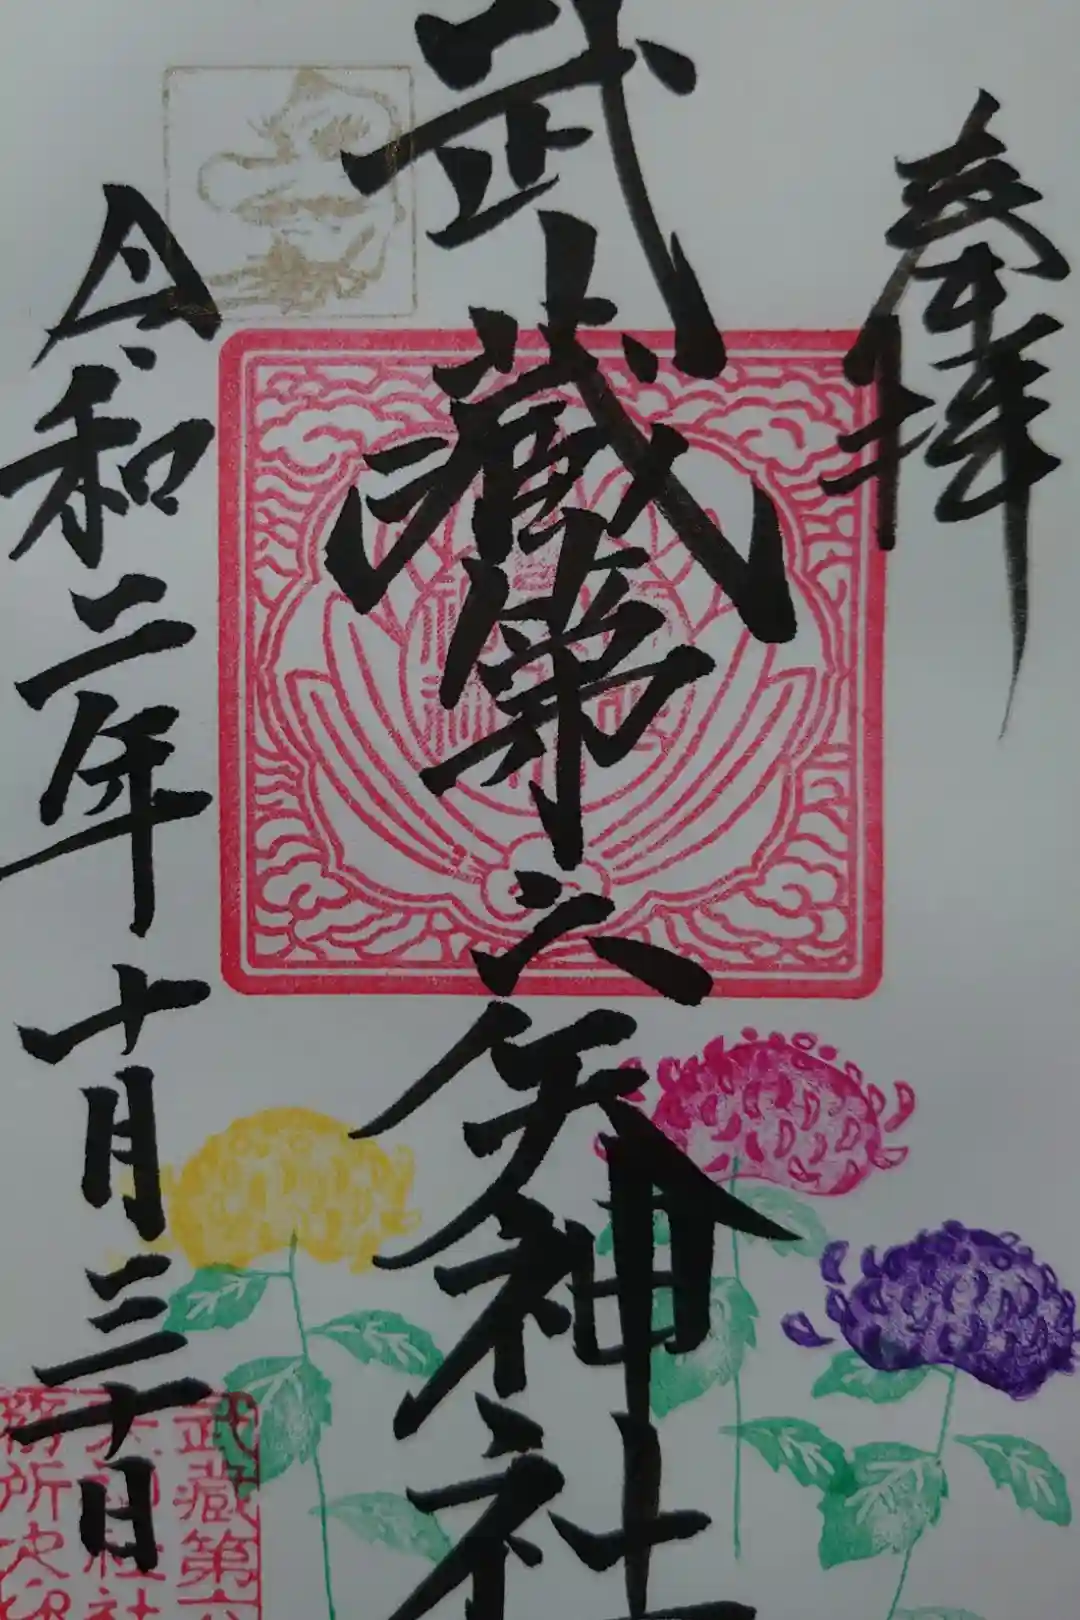 奉拝
武蔵第六天神社
令和二年十月三十日
武蔵第六
天神社社
務所